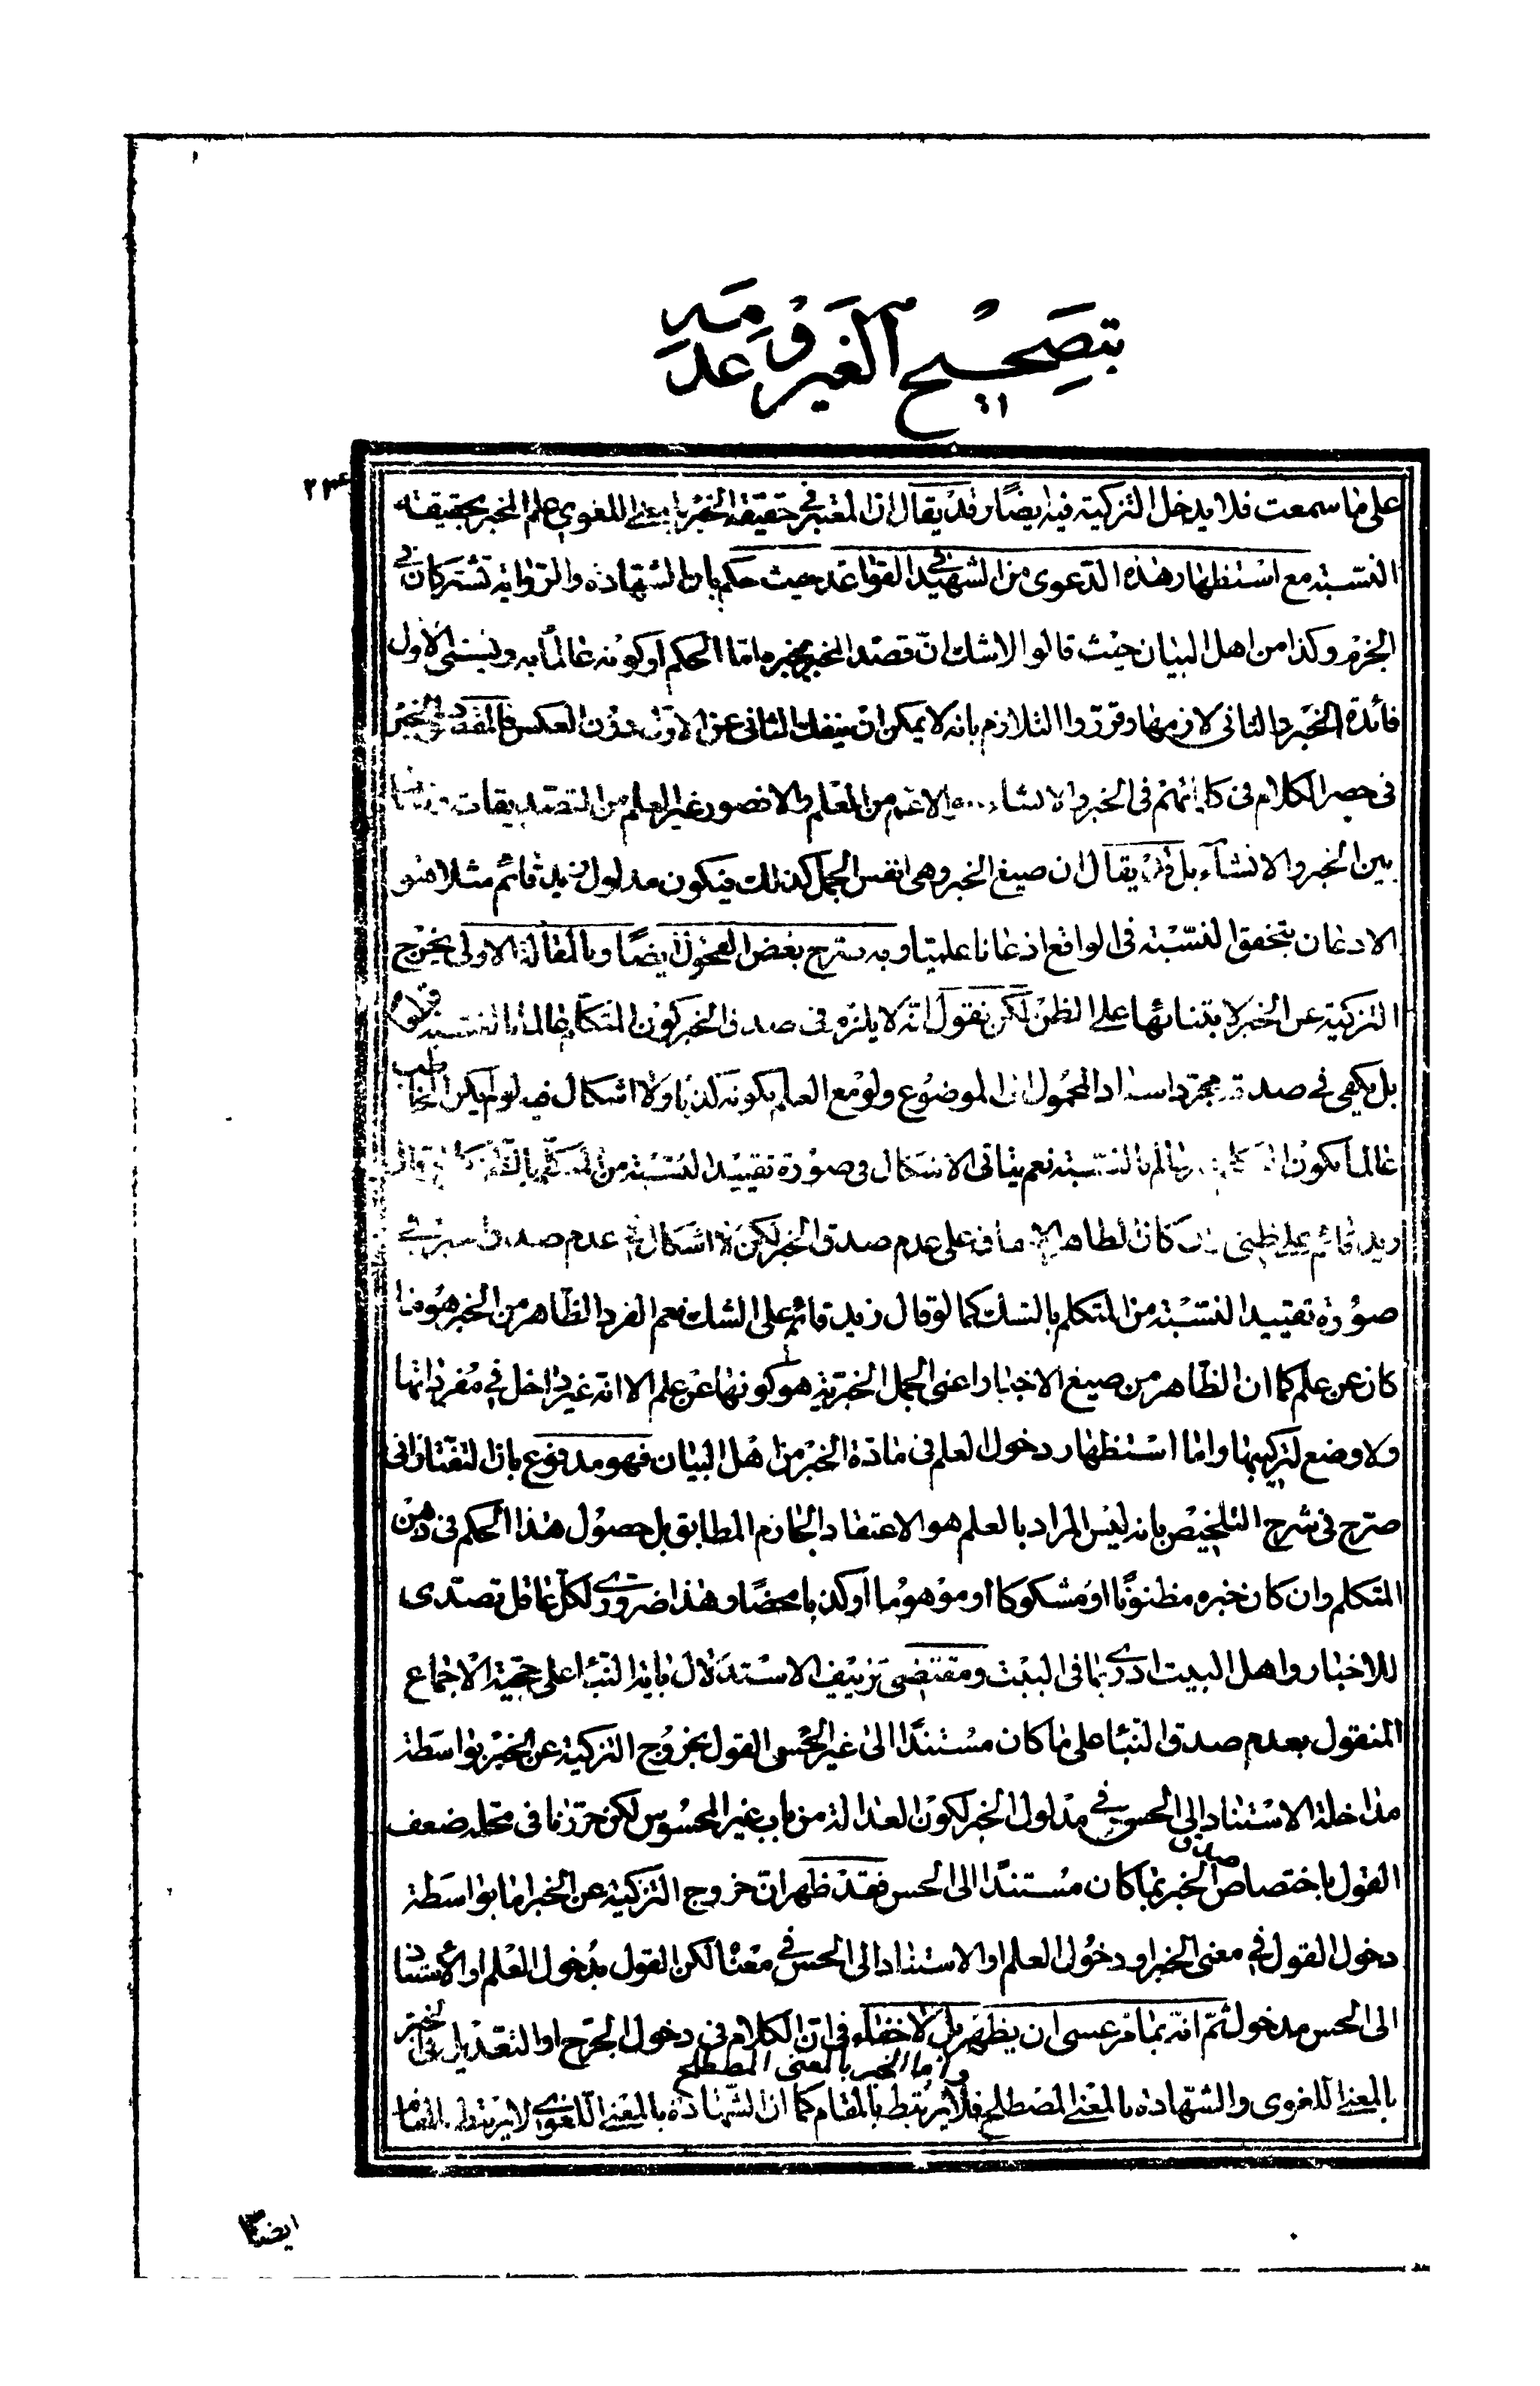 بتصحيح الغير وعدمه
على ما سمعت فلا يدخل التزكية فيه ايضًا وقد يقال ان المعتبر في حقيقة الخبر بالمعنى اللغوي علم المخبر بحقيقة
النسبة مع استظهار هذه الدعوى من الشهيد في القواعد حيث حكم بان الشهادة والرواية تشتركان في
الجزم وكذا من اهل البيان حيث قالوا لا شك ان قصد المخبر بخبره اما الحكم او كونه عالمًا به ويسمى الاول
فائدة الخبر والثاني لازمها وقرروا التلازم بانه لا يمكن ان ينفك الثاني عن الاول دون العكس
في حصر الكلام في كلماتهم في الخبر والانشاء الاعم من العلم والا فصور غير العلم من التصديقات
بين الخبر والانشاء بل قد يقال ان صيغ الخبر وهي نفس الجمل كذلك فيكون مدلول زيد قائم مثلا هو
الاذعان بتحقق النسبة في الواقع اذعانا علميا وبه صرح بعض الفحول ايضًا وبالمقالة الاولى يخرج
التزكية عن الخبر لابتنائها على الظن لكن نقول انه لا يلزم في صدق الخبر كون المتكلم عالما بالنسبة
بل يكفي في صدقه مجرد اسناد المحمول الى الموضوع ولو مع العلم بكونه كذبا ولا اشكال فيه لو لم يكن المخاطب
عالما بكون المتكلم عالم بالنسبة نعم يتاتى الاشكال في صورة تقييد النسبة من المتكلم بالظن
زيد قائم على ظني كان الظاهر على عدم صدق الخبر لكن لا اشكال في عدم صدق الخبر في
صورة تقييد النسبة من المتكلم بالشك كما لو قال زيد قائم على الشك نعم الفرد الظاهر من الخبر هو ما
كان عن علم كما ان الظاهر من صيغ الاخبار اعني الجمل الخبرية هو كونها عن علم الا انه غير داخل في مفرداتها
ولا وضع لتركيبها واما استظهار دخول العلم في مادة الخبر من اهل البيان فهو مدفوع بان التفتازاني
صرح في شرح التلخيص بانه ليس المراد بالعلم هو الاعتقاد الجازم المطابق بل حصول هذا الحكم في ذهن
المتكلم وان كان خبره مظنونًا او مشكوكا او موهوما او كذبا محضًا وهذا ضروري لكل عاقل تصدى
للاخبار واهل البيت ادرى بما في البيت ومقتضى تزييف الاستدلال باية النبأ على حجية الاجماع
المنقول بعدم صدق النبأ على ما كان مستندًا الى غير الحس القول بخروج التزكية عن الخبر بواسطة
مداخلة الاستناد الى الحس في مدلول الخبر لكون العدالة من باب غير المحسوس لكن حررنا في محله ضعف
القول باختصاص صدق الخبر بما كان مستندًا الى الحس فقد ظهر ان خروج التزكية عن الخبر اما بواسطة
دخول القول في معنى الخبر او دخول العلم او الاستناد الى الحس في معناه لكن القول بدخول العلم او الاستناد
الى الحس مدخول ثم انه بما مر عسى ان يظهر بل لا خفاء في ان الكلام في دخول الجرح او التعديل في الخبر
بالمعنى اللغوي والشهادة بالمعنى المصطلح واما الخبر بالمعنى المصطلح فلا يرتبط بالمقام كما ان الشهادة بالمعنى اللغوي لا يرتبط بالمقام
ايضا